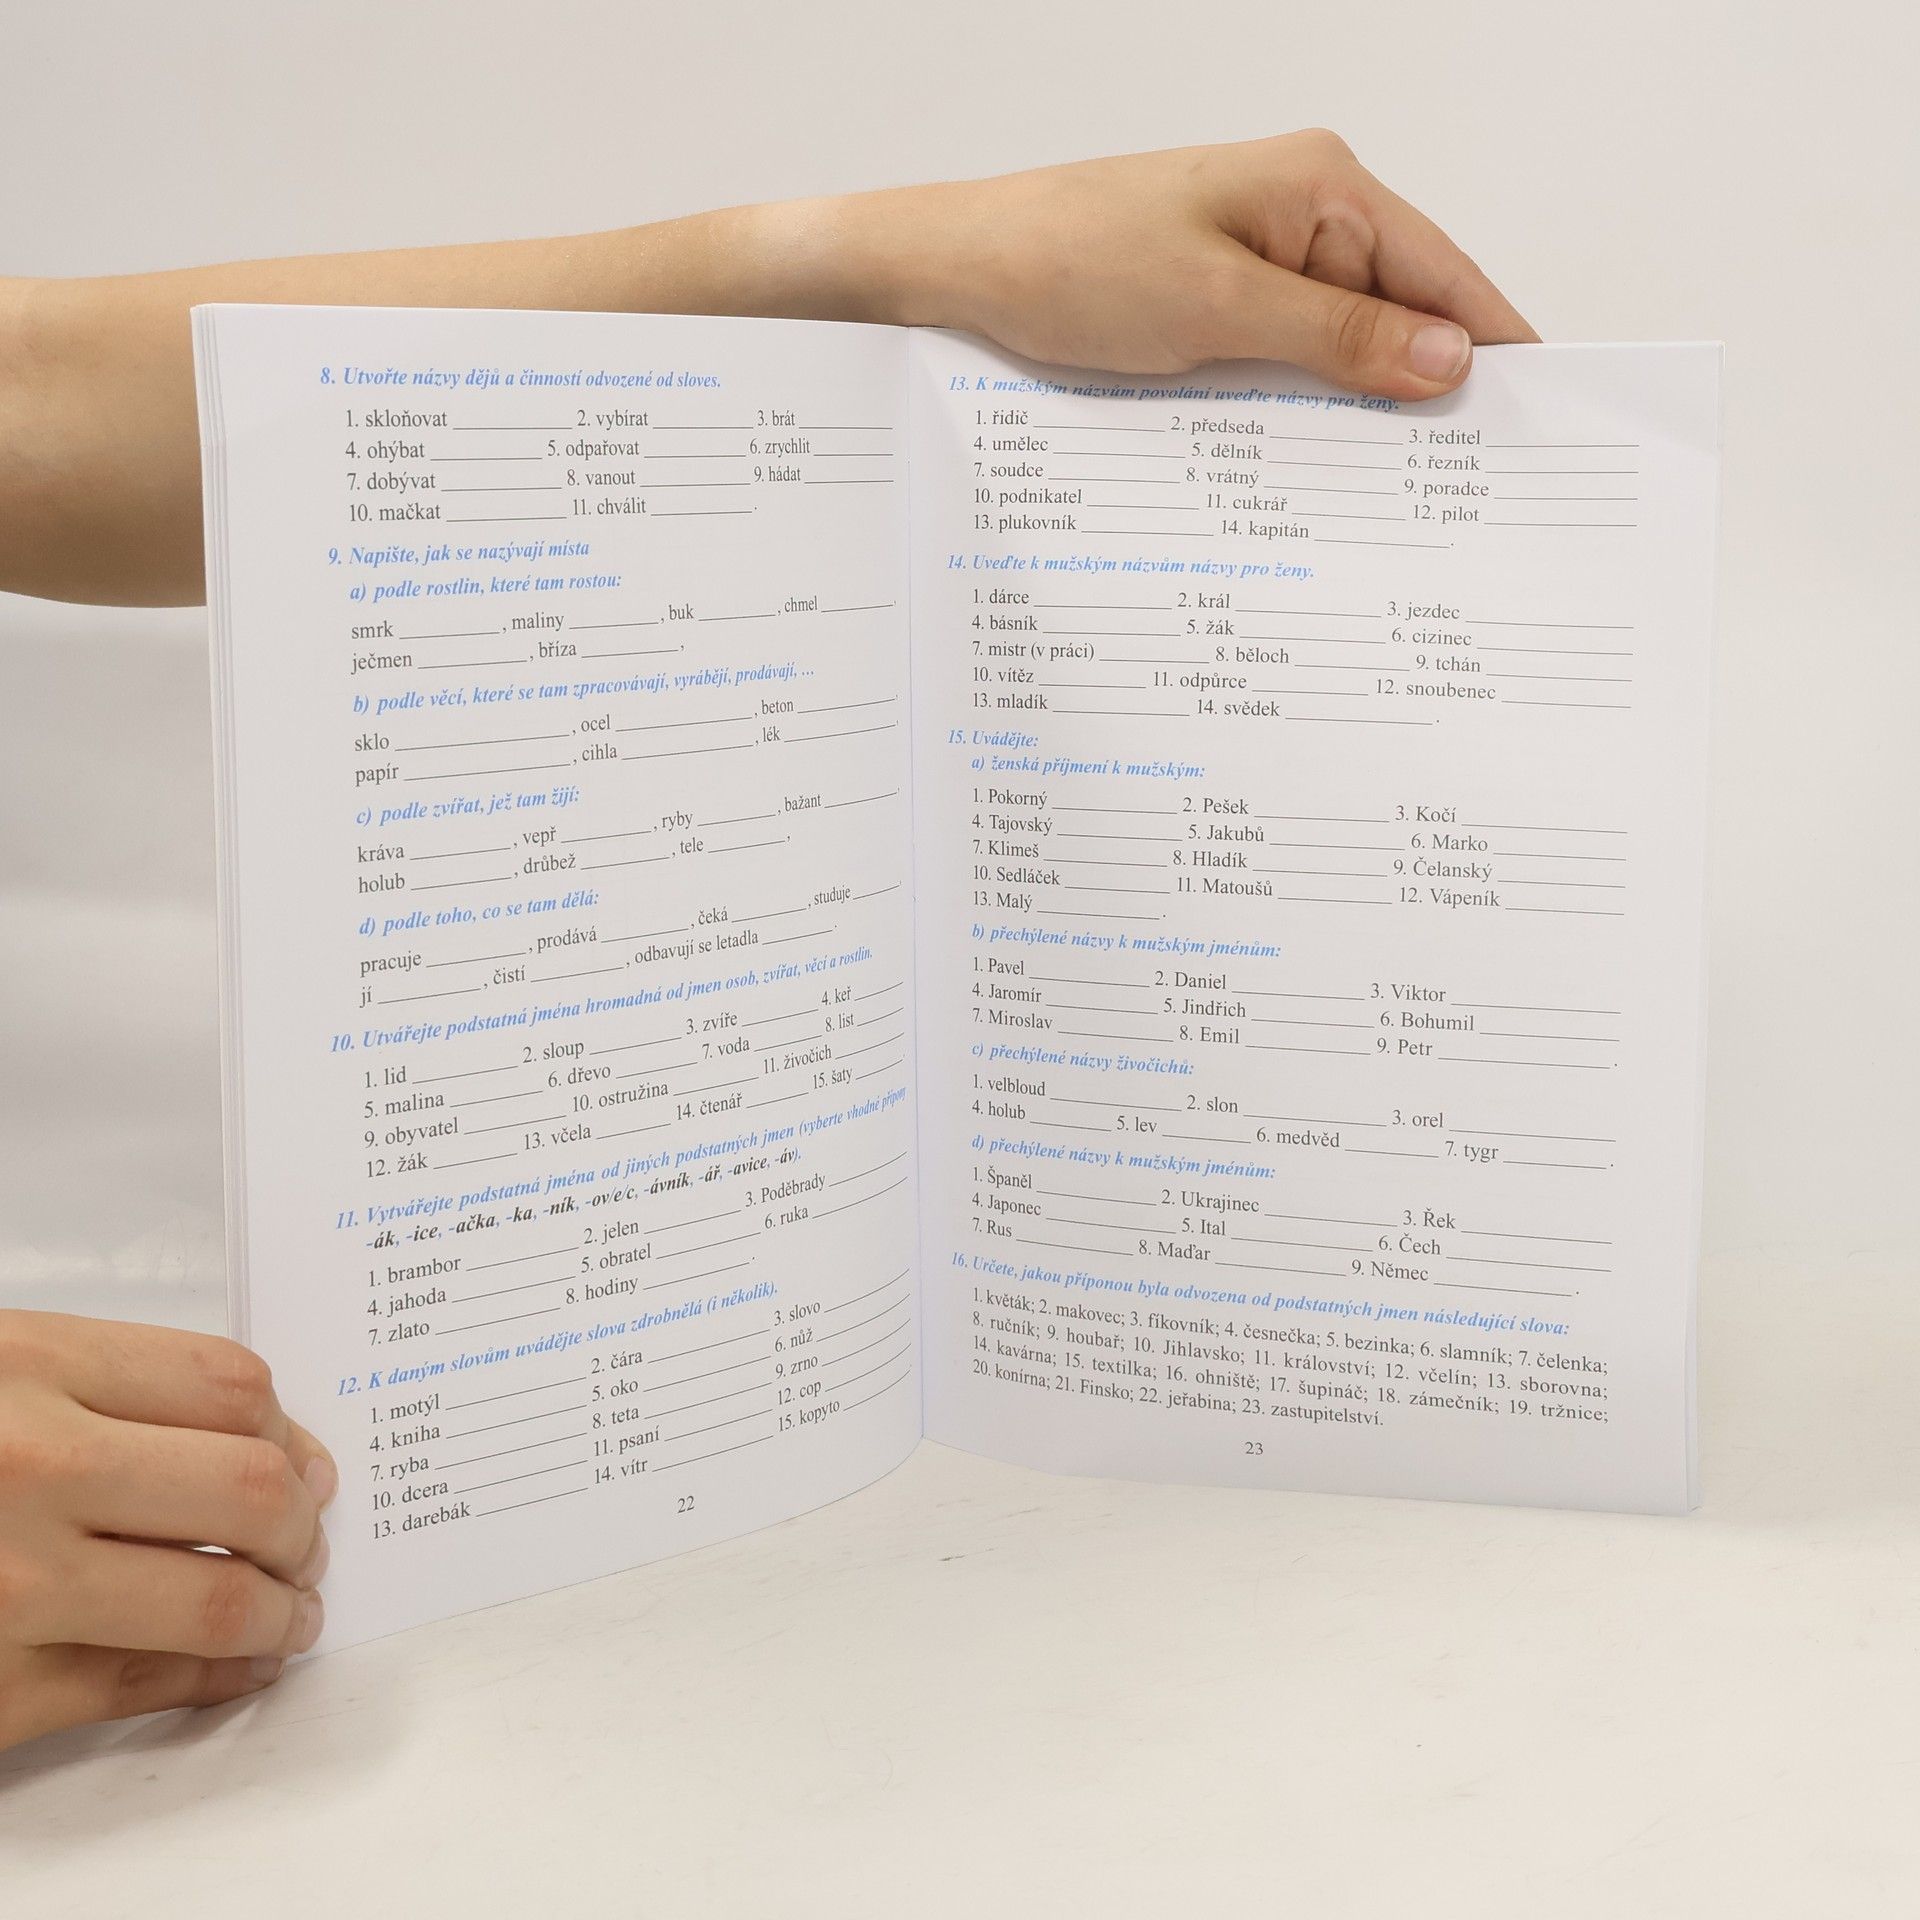 8. Utvořte názvy dějů a činností odvozené od sloves.
1. skloňovat __________ 2. vybírat __________ 3. brát __________
4. ohýbat __________ 5. odpařovat __________ 6. zrychlit __________
7. dobývat __________ 8. vanout __________ 9. hádat __________
10. mačkat __________ 11. chválit __________.
9. Napište, jak se nazývají místa
a) podle rostlin, které tam rostou:
smrk __________, maliny __________, buk __________, chmel __________,
ječmen __________, bříza __________,
b) podle věcí, které se tam zpracovávají, vyrábějí, prodávají, ...
sklo __________, ocel __________, beton __________,
papír __________, cihla __________, lék __________,
c) podle zvířat, jež tam žijí:
kráva __________, vepř __________, ryby __________, bažant __________,
holub __________, drůbež __________, tele __________,
d) podle toho, co se tam dělá:
pracuje __________, prodává __________, čeká __________, studuje __________,
jí __________, čistí __________, odbavují se letadla __________.
10. Utvářejte podstatná jména hromadná od jmen osob, zvířat, věcí a rostlin.
1. lid __________ 2. sloup __________ 3. zvíře __________ 4. keř __________
5. malina __________ 6. dřevo __________ 7. voda __________ 8. list __________
9. obyvatel __________ 10. ostružina __________ 11. živočich __________
12. žák __________ 13. včela __________ 14. čtenář __________ 15. šaty __________.
11. Vytvářejte podstatná jména od jiných podstatných jmen (vyberte vhodné přípony
-ák, -ice, -ačka, -ka, -ník, -ov/e/c, -ávník, -ář, -avice, -áv).
1. brambor __________ 2. jelen __________ 3. Poděbrady __________
4. jahoda __________ 5. obratel __________ 6. ruka __________
7. zlato __________ 8. hodiny __________.
12. K daným slovům uvádějte slova zdrobnělá (i několik).
1. motýl __________ 2. čára __________ 3. slovo __________
4. kniha __________ 5. oko __________ 6. nůž __________
7. ryba __________ 8. teta __________ 9. zrno __________
10. dcera __________ 11. psaní __________ 12. cop __________
13. darebák __________ 14. vítr __________ 15. kopyto __________
22
13. K mužským názvům povolání uveďte názvy pro ženy.
1. řidič __________ 2. předseda __________ 3. ředitel __________
4. umělec __________ 5. dělník __________ 6. řezník __________
7. soudce __________ 8. vrátný __________ 9. poradce __________
10. podnikatel __________ 11. cukrář __________ 12. pilot __________
13. plukovník __________ 14. kapitán __________.
14. Uveďte k mužským názvům názvy pro ženy.
1. dárce __________ 2. král __________ 3. jezdec __________
4. básník __________ 5. žák __________ 6. cizinec __________
7. mistr (v práci) __________ 8. běloch __________ 9. tchán __________
10. vítěz __________ 11. odpůrce __________ 12. snoubenec __________
13. mladík __________ 14. svědek __________.
15. Uvádějte:
a) ženská příjmení k mužským:
1. Pokorný __________ 2. Pešek __________ 3. Kočí __________
4. Tajovský __________ 5. Jakubů __________ 6. Marko __________
7. Klimeš __________ 8. Hladík __________ 9. Čelanský __________
10. Sedláček __________ 11. Matoušů __________ 12. Vápeník __________
13. Malý __________.
b) přechýlené názvy k mužským jménům:
1. Pavel __________ 2. Daniel __________ 3. Viktor __________
4. Jaromír __________ 5. Jindřich __________ 6. Bohumil __________
7. Miroslav __________ 8. Emil __________ 9. Petr __________.
c) přechýlené názvy živočichů:
1. velbloud __________ 2. slon __________ 3. orel __________
4. holub __________ 5. lev __________ 6. medvěd __________ 7. tygr __________.
d) přechýlené názvy k mužským jménům:
1. Španěl __________ 2. Ukrajinec __________ 3. Řek __________
4. Japonec __________ 5. Ital __________ 6. Čech __________
7. Rus __________ 8. Maďar __________ 9. Němec __________.
16. Určete, jakou příponou byla odvozena od podstatných jmen následující slova:
1. květák; 2. makovec; 3. fíkovník; 4. česnečka; 5. bezinka; 6. slamník; 7. čelenka;
8. ručník; 9. houbař; 10. Jihlavsko; 11. království; 12. včelín; 13. sborovna;
14. kavárna; 15. textilka; 16. ohniště; 17. šupináč; 18. zámečník; 19. tržnice;
20. konírna; 21. Finsko; 22. jeřabina; 23. zastupitelství.
23